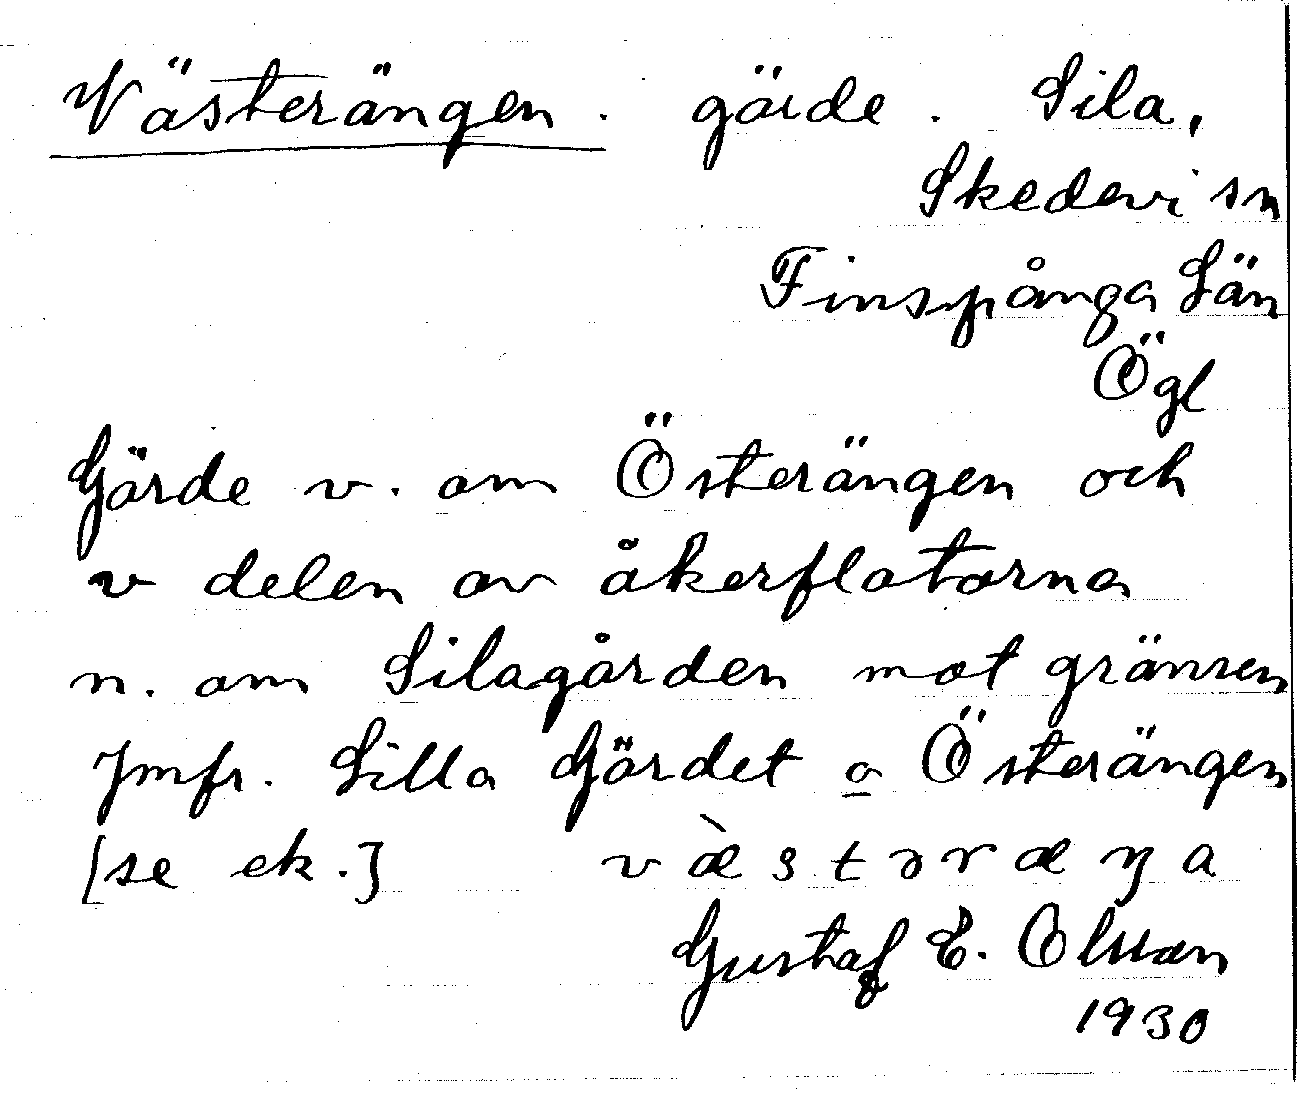 Västerängen. gärde. Sila,
Skedevi sn
Finspånga Län
Ögl
Gärde v. om Österängen och
v delen av åkerflatorna
n. om Silagården mot gränsen
Jmfr. Lilla Gärdet o Österängen
[se ek.] væ̀stəræŋa
Gustaf E. Olsson
1930